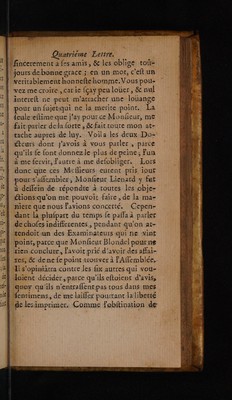 Quatriéme Lettre.
sincerement à ses amis, & les oblige toû-
jours de bonne grace ; en un mot, c'est un
veritablement honneste homme. Vous pou-
vez me croire, car je sçay peu loüer, & nul
interest ne peut m'attacher une loüange
pour un sujet qui ne la merite point. La
seule estime que j'ay pour ce Monsieur, me
fait parler de la sorte, & fait toute mon at-
tache auprès de luy. Voila les deux Do-
cteurs dont j'avois à vous parler, parce
qu'ils se sont donnez le plus de peine, l'un
à me servir, l'autre à me desobliger. Lors
donc que ces Messieurs eurent pris jour
pour s'assembler, Monsieur Lienard y fut
à dessein de répondre à toutes les obje-
ctions qu'on me pouvoit faire, de la ma-
niere que nous l'avions concerté. Cepen-
dant la pluspart du temps se passa à parler
de choses indifferentes, pendant qu'on at-
tendoit un des Examinateurs qui ne vint
point, parce que Monsieur Blondel pour ne
rien conclure, l'avoit prié d'avoir des affai-
res, & de ne se point trouver à l'Assemblée.
Il s'opiniâtra contre les six autres qui vou-
loient décider, parce qu'ils estoient d'avis,
quoy qu'ils n'entrassent pas tous dans mes
sentimens, de me laisser pourtant la liberté
de les imprimer. Comme l'obstination de